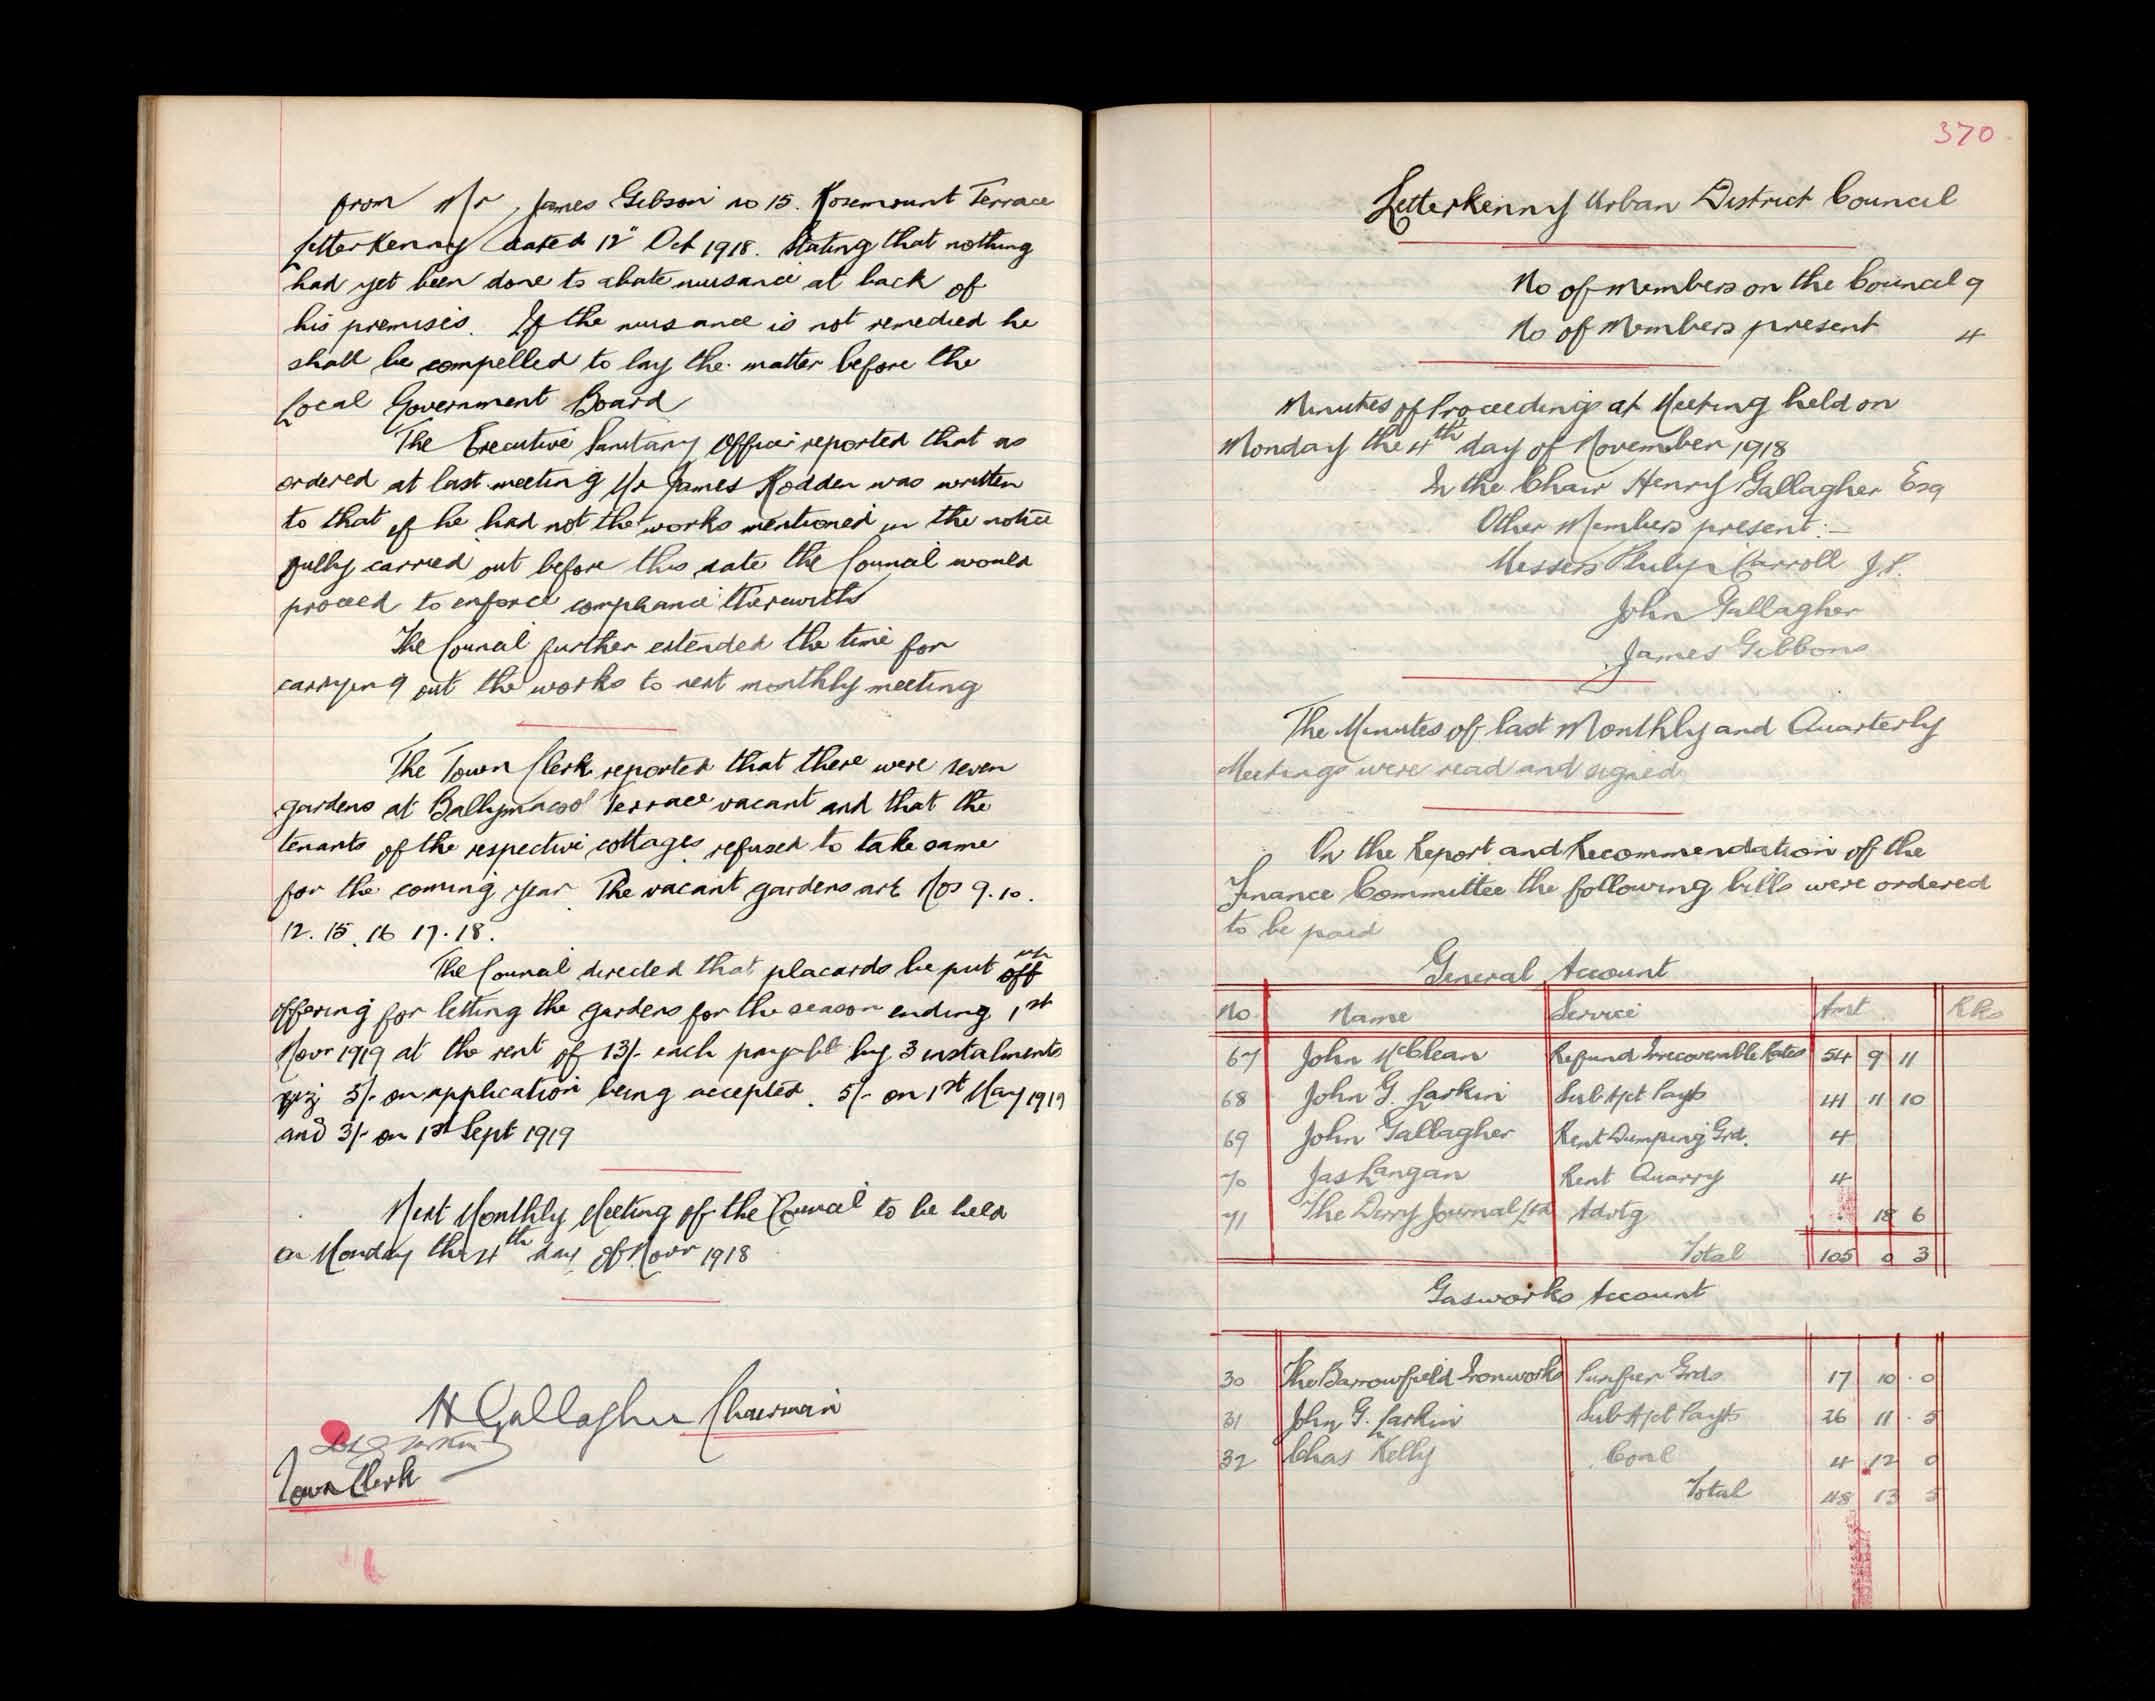 from Mr James Gibson no 15. Rosemount Terrace
Letterkenny dated 12" Oct 1918. stating that nothing
had yet been done to abate nuisance at back of
his premises. If the nuisance is not remedied he
shall be compelled to lay the matter before the
Local Government Board
The Executive Sanitary Officer reported that as
ordered at last meeting Mr James Rodden was written
to that if he had not the works mentioned in the notice
fully carried out before this date the Council would
proceed to enforce compliance therewith
The Council further extended the time for
carrying out the works to next monthly meeting
The Town Clerk reported that there were seven
gardens at Ballymacool Terrace vacant and that the
tenants of the respective cottages refused to take same
for the coming year. The vacant gardens are Nos 9.10.
12. 15. 16 17. 18.
The Council directed that placards be put off up
offering for letting the gardens for the season ending 1st
Novr 1919 at the rent of 13/- each payable by 3 instalments
viz 5/- on application being accepted. 5/- on 1st May 1919
and 3/- on 1st Sept 1919
Next Monthly Meeting of the Council to be held
on Monday the 4th day of Novr 1918
H Gallagher Chairman
Town Clerk
370
Letterkenny Urban District Council
No of Members on the Council 9
No of Members present 4
Minutes of Proceedings at Meeting held on
Monday the 4th day of November 1918
In the Chair Henry Gallagher Esq
Other Members present:-
Messrs Philip Carroll J.P.
John Gallagher
James Gibbons
The Minutes of last Monthly and Quarterly
Meetings were read and signed
On the Report and Recommendation of the
Finance Committee the following bills were ordered
to be paid
General Account
No Name Service Amt Rks
67 John McClean Refund Irrecoverable Rates 54 9 11
68 John G. Larkin Sub Acct Payts 41 11 10
69 John Gallagher Rent Dumping Grd. 4
70 Jas Langan Rent Quarry 4
71 The Derry Journal Ltd Advtg 18 6
Total 105 0 3
Gasworks Account
30 The Barrowfield Ironworks Purifier Grds 17 10. 0
31 John G. Larkin Sub Acct Payts 26 11. 5
32 Chas Kelly Coal 4 12 0
Total 48 13 5